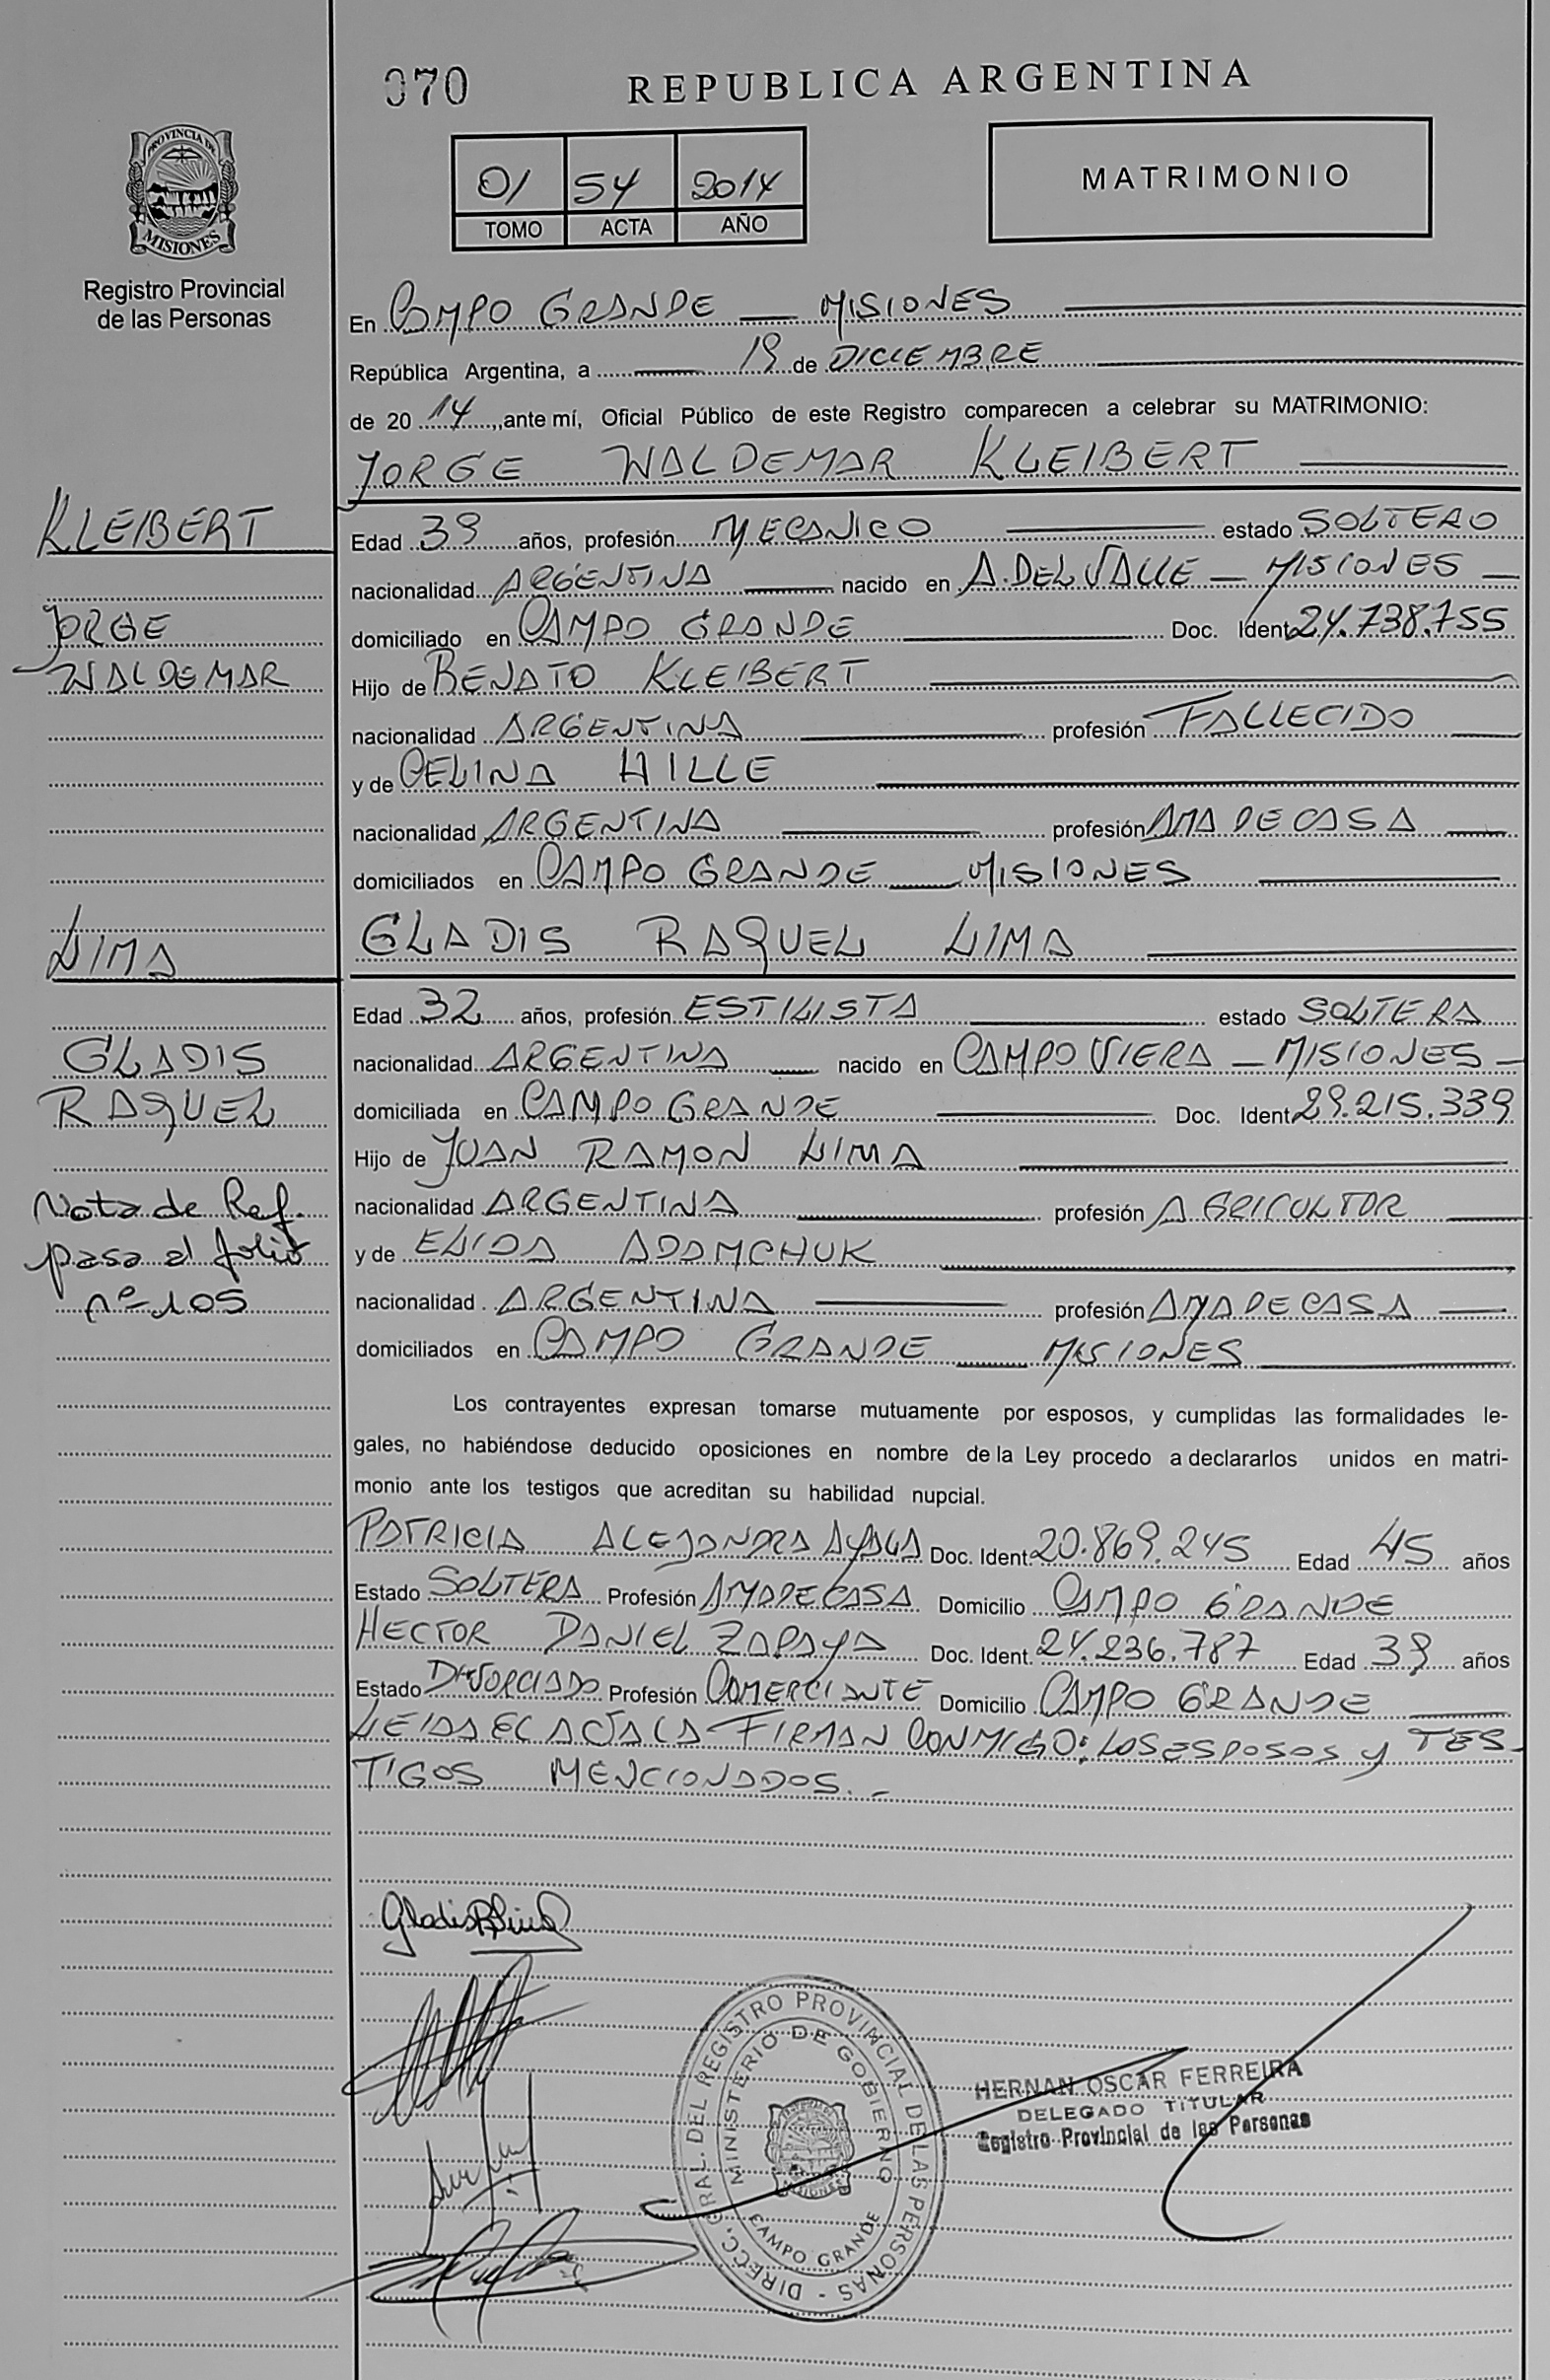 070
REPUBLICA ARGENTINA
PROVINCIA DE
MISIONES
Registro Provincial
de las Personas
01 54 2014
TOMO ACTA AÑO
MATRIMONIO
En CAMPO GRANDE — MISIONES
República Argentina, a 19 de DICIEMBRE
de 20 14, ante mí, Oficial Público de este Registro comparecen a celebrar su MATRIMONIO:
JORGE WALDEMAR KLEIBERT
KLEIBERT
JORGE
WALDEMAR
Edad 39 años, profesión MECANICO estado SOLTERO
nacionalidad ARGENTINA nacido en A. DEL VALLE — MISIONES —
domiciliado en CAMPO GRANDE Doc. Ident 24.738.755
Hijo de RENATO KLEIBERT
nacionalidad ARGENTINA profesión FALLECIDO
y de CELINA HILLE
nacionalidad ARGENTINA profesión AMA DE CASA
domiciliados en CAMPO GRANDE — MISIONES
GLADIS RAQUEL LIMA
LIMA
GLADIS
RAQUEL
Edad 32 años, profesión ESTILISTA estado SOLTERA
nacionalidad ARGENTINA nacido en CAMPO VIERA — MISIONES —
domiciliada en CAMPO GRANDE Doc. Ident 29.215.339
Hijo de JUAN RAMON LIMA
nacionalidad ARGENTINA profesión AGRICULTOR
y de ELIDA ADAMCHUK
nacionalidad ARGENTINA profesión AMA DE CASA
domiciliados en CAMPO GRANDE — MISIONES
Nota de Ref.
pasa al folio
nº 105
Los contrayentes expresan tomarse mutuamente por esposos, y cumplidas las formalidades le-
gales, no habiéndose deducido oposiciones en nombre de la Ley procedo a declararlos unidos en matri-
monio ante los testigos que acreditan su habilidad nupcial.
PATRICIA ALEJANDRA AYALA Doc. Ident. 20.869.245 Edad 45 años
Estado SOLTERA Profesión AMA DE CASA Domicilio CAMPO GRANDE
HECTOR DANIEL ZAPAYA Doc. Ident. 24.236.787 Edad 39 años
Estado DIVORCIADO Profesión COMERCIANTE Domicilio CAMPO GRANDE
LEIDA EL ACTA LA FIRMAN CONMIGO: LOS ESPOSOS y TES-
TIGOS MENCIONADOS.-
Gladis R Lima
DIRECC. GRAL. DEL REGISTRO PROVINCIAL DE LAS PERSONAS -
MINISTERIO DE GOBIERNO
CAMPO GRANDE
MISIONES
HERNAN OSCAR FERREIRA
DELEGADO TITULAR
Registro Provincial de las Personas